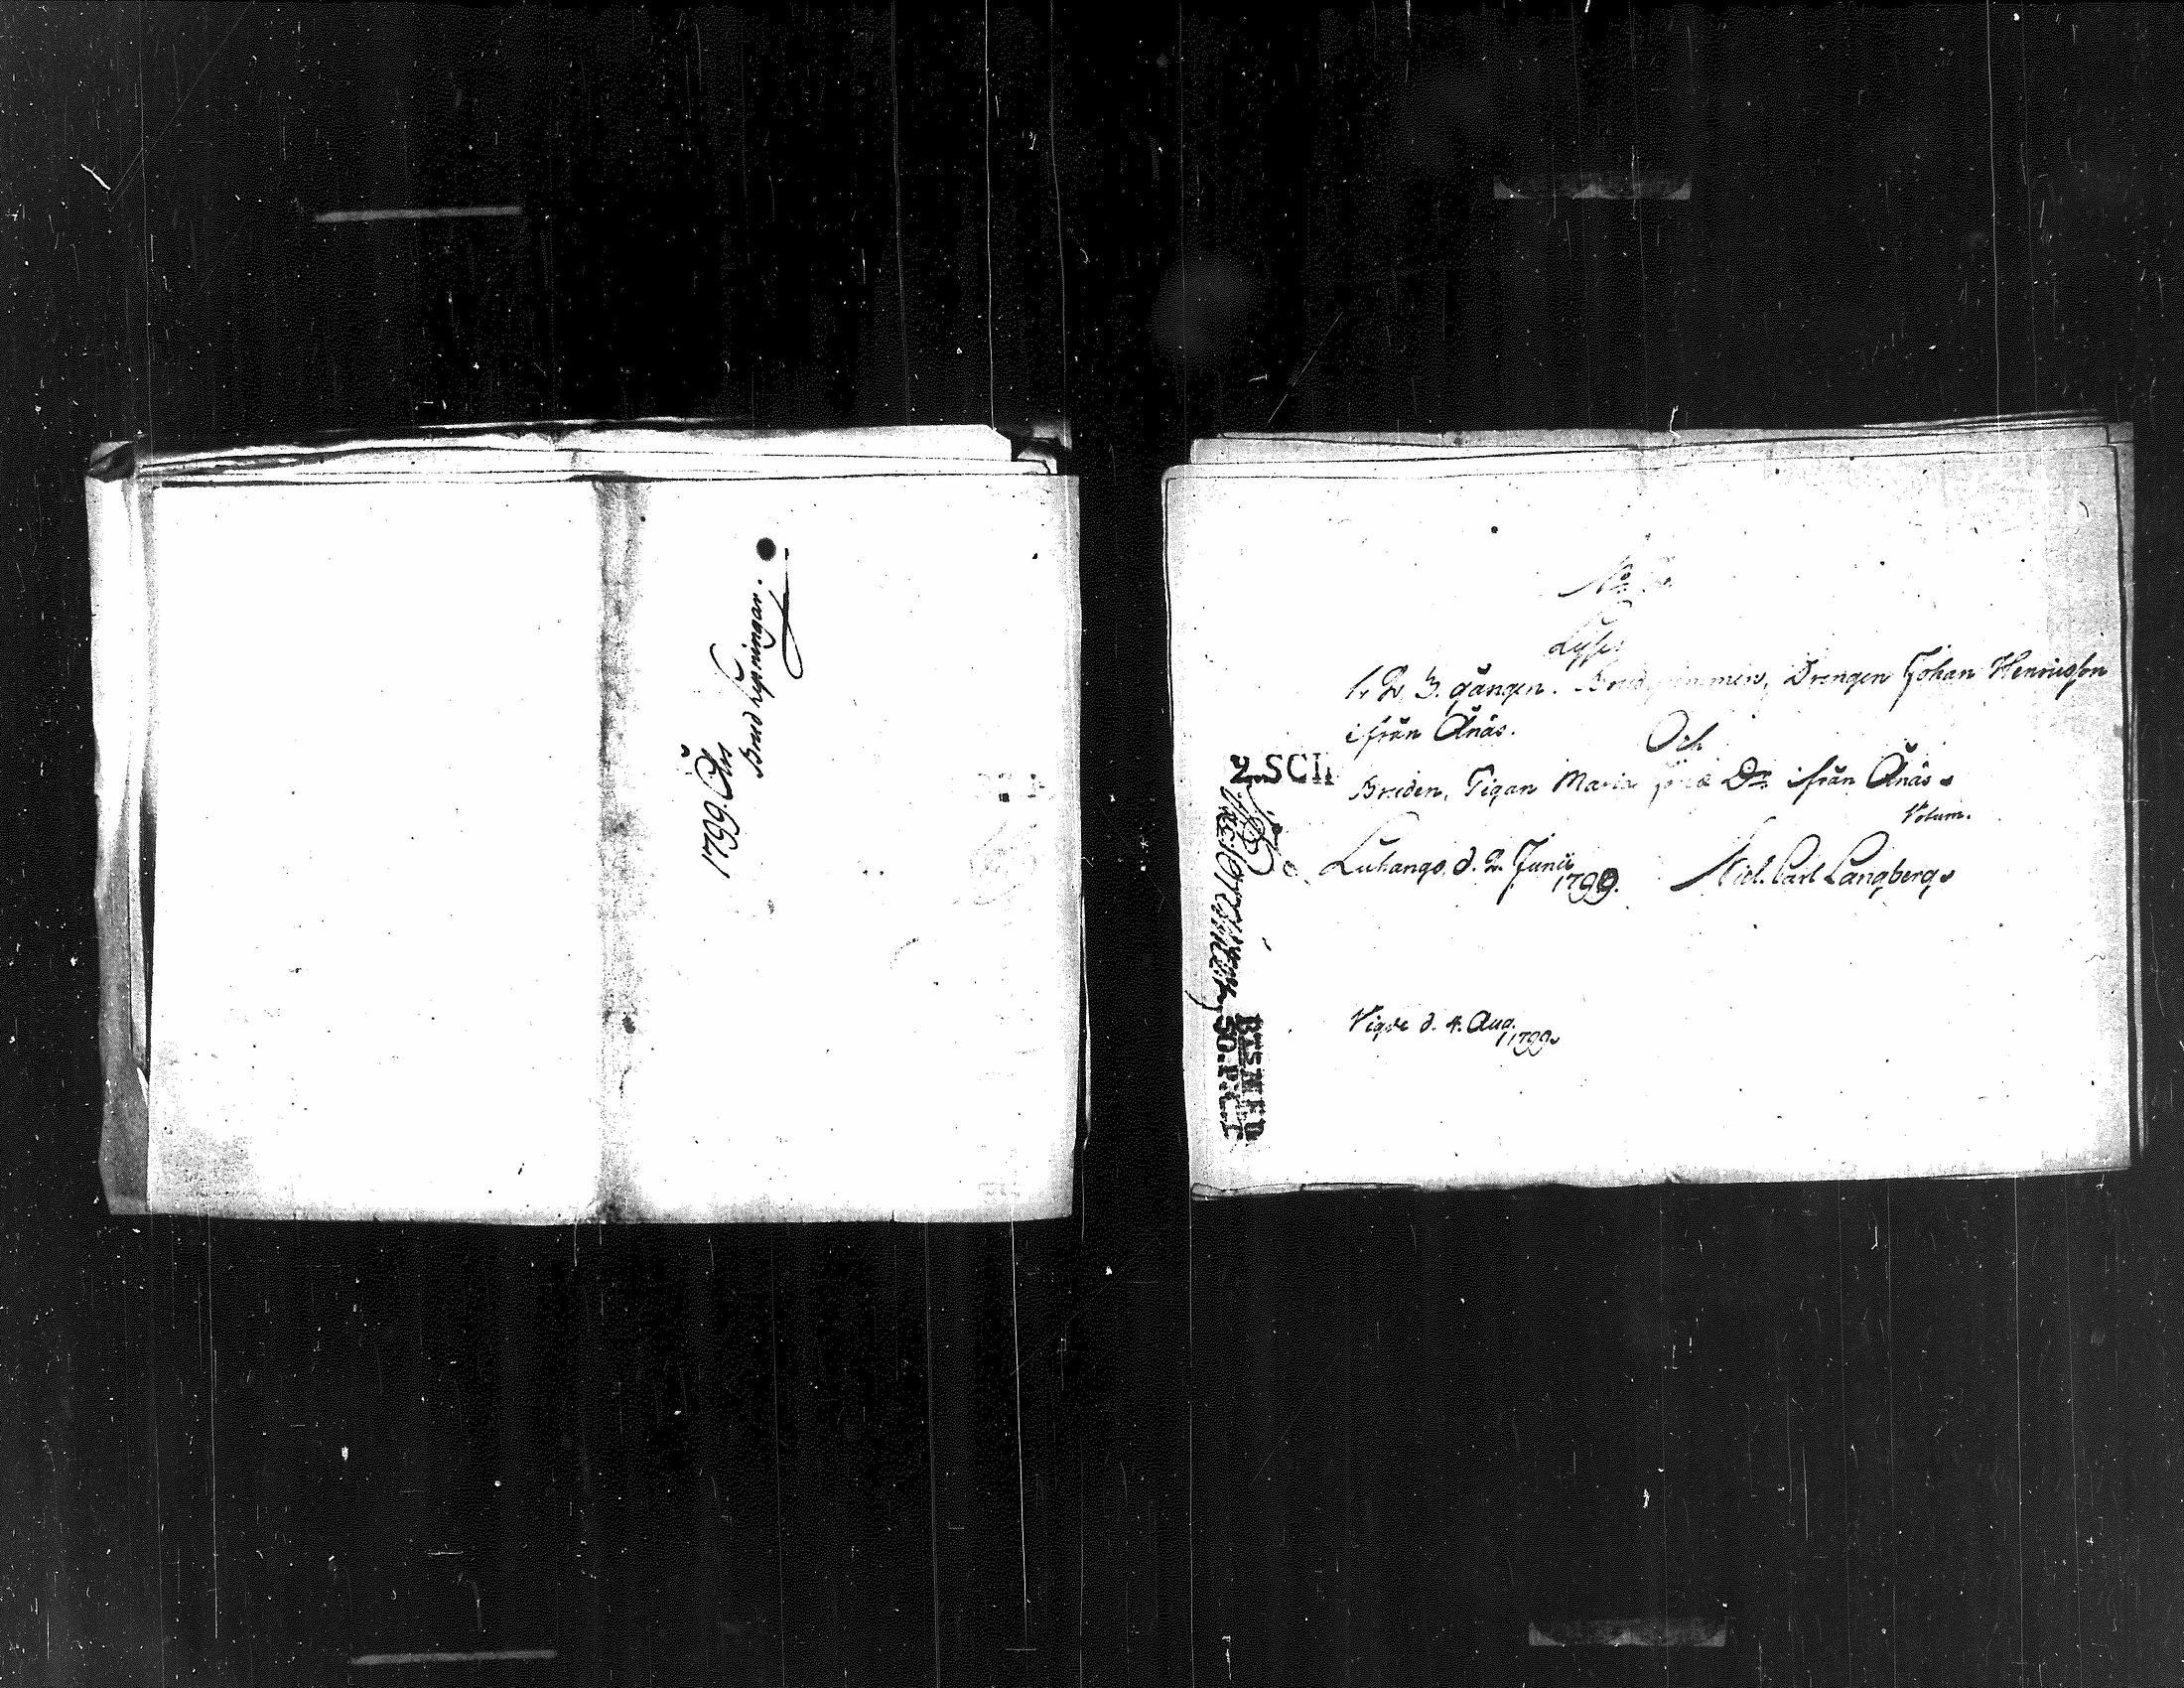 1799. Års
Brud Lysningar.
No
Lyses
1. 2. 3. gången. Brudgummen, Drengen Johan Henricsson
ifrån Änäs.
Och
Bruden, Pigan Maria D:r ifrån Änäs.
Votum.
Luhango, d. 2. Junii
1799.
Nicl. Carl Langberg.
Vigde d. 4. Aug.
1799.
2. SCH